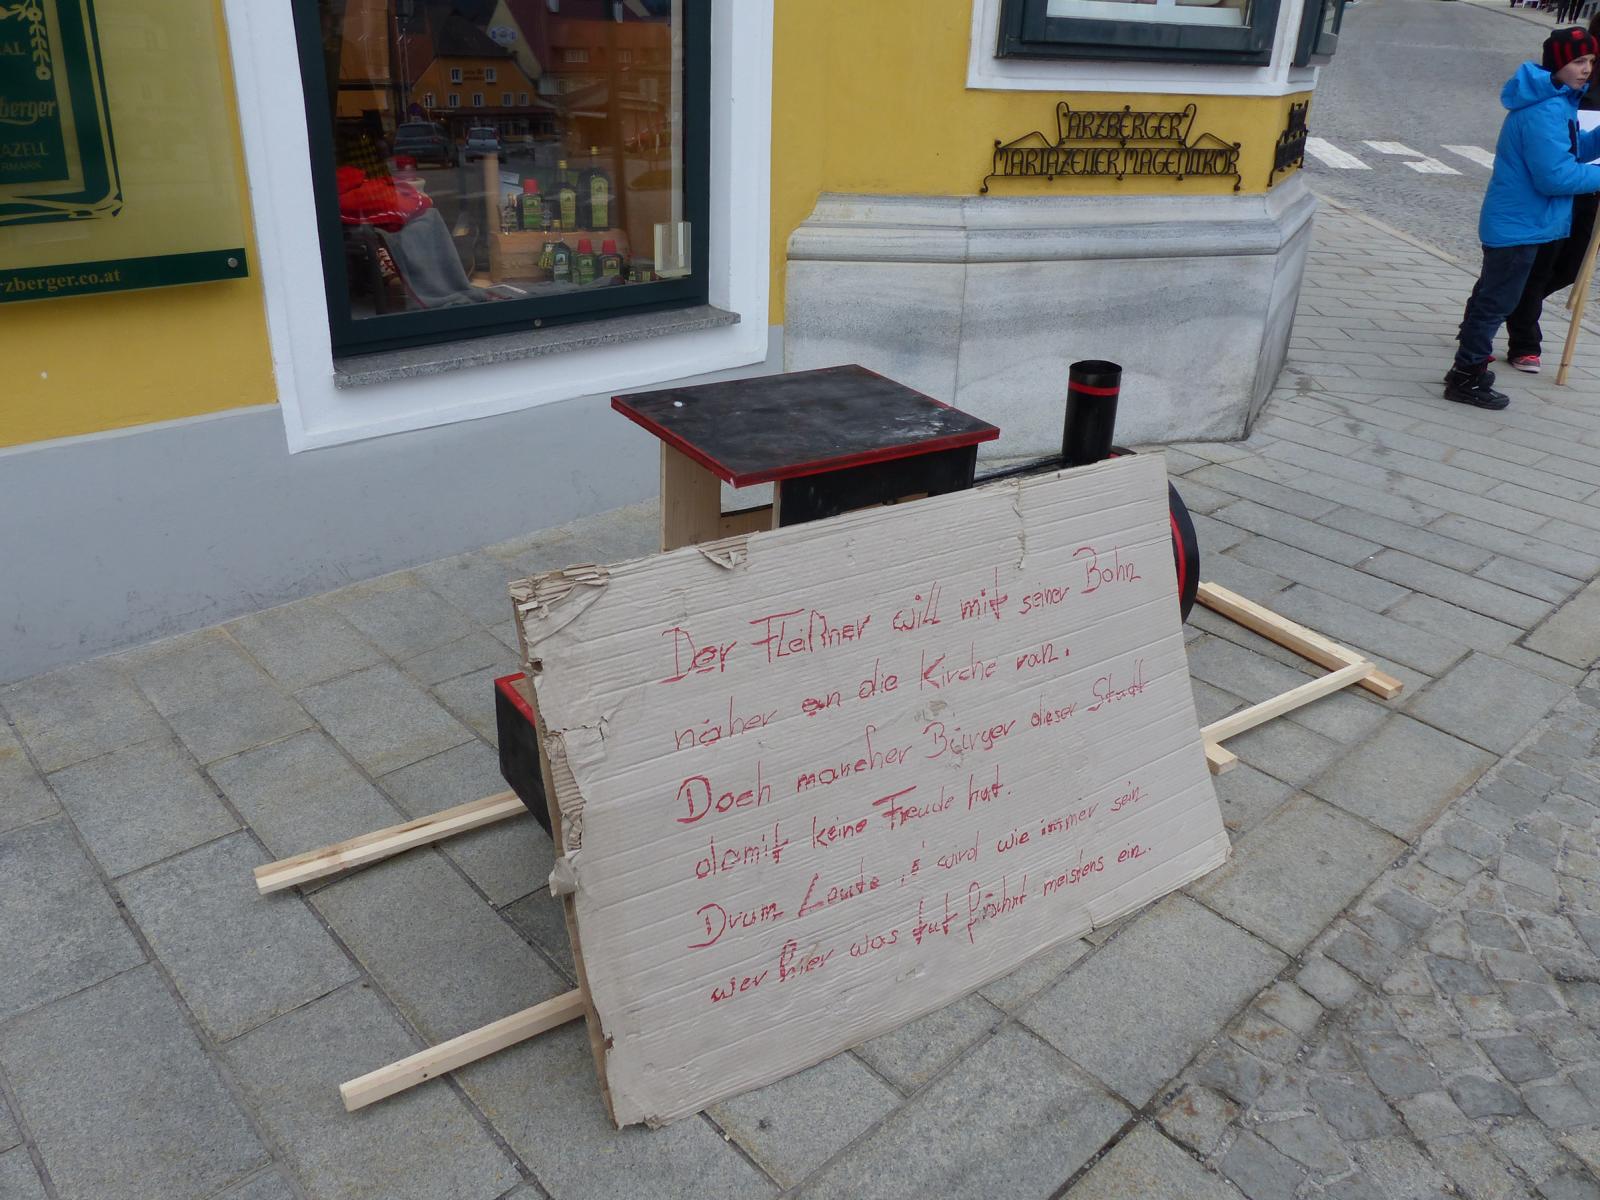 AL
berger
AZELL
RMARK
rzberger.co.at
ARZBERGER
MARIAZELLER MAGENLIKÖR
Der Fleißner will mit seiner Bahn
näher an die Kirche ran.
Doch mancher Bürger dieser Stadt
damit keine Freude hat.
Drum Leute, s' wird wie immer sein
wer hier was tut fährt meistens ein.